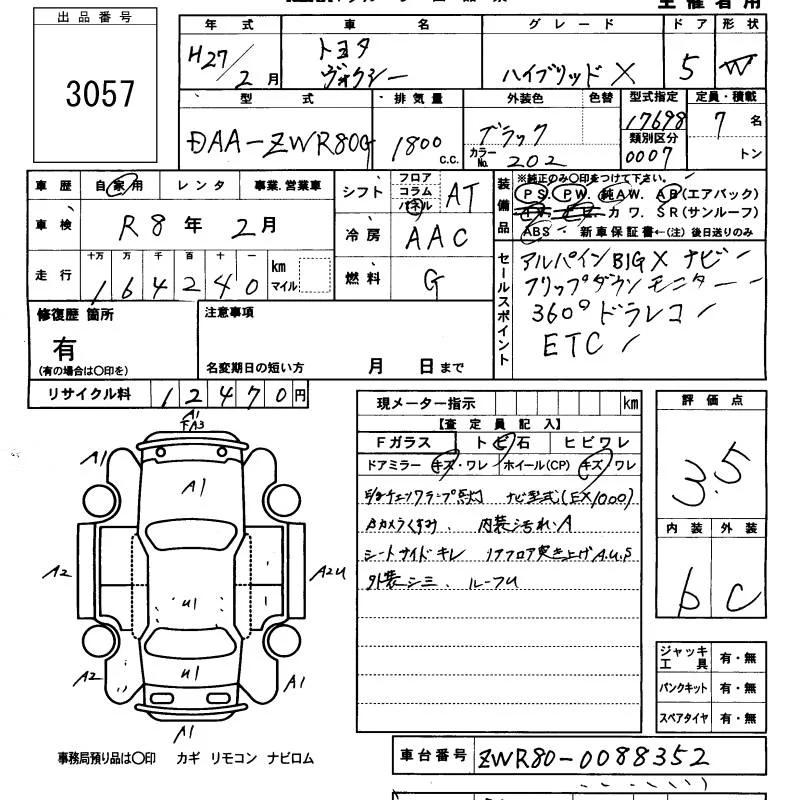 主催者用
出品番号
3057
年式 車名 グレード ドア 形状
H27/2月 トヨタ ヴォクシー ハイブリッド X 5 W
型式 排気量 外装色 色替 型式指定 定員・積載
DAA-ZWR80G 1800 c.c. ブラック カラーNo. 202 17698 類別区分 0007 7名 トン
車歴 自家用 レンタ 事業.営業車
シフト フロア コラム パネル AT
車検 R8年 2月
冷房 AAC
走行 十万 万 千 百 十 一 km マイル
164240
燃料 G
装備品 ※純正のみ〇印をつけて下さい。
PS. PW. 純AW. AB(エアバック)
カワ. SR(サンルーフ)
ABS 新車保証書←(注) 後日送りのみ
セールスポイント
アルパインBIGX ナビ
フリップダウンモニター
360°ドラレコ
ETC
修復歴 箇所
有
(有の場合は〇印を)
注意事項
名変期日の短い方 月 日まで
リサイクル料 12470円
現メーター指示 km
【査定員記入】
Fガラス トビ石 ヒビワレ
ドアミラー キズ・ワレ ホイール(CP) キズ・ワレ
ナビ型式(EX1000)
Bカメラくすみ、 内装汚れ、A
シートサイドキレ リアフロア突き上げA.U.S
外装シミ、ルーフU
評価点
3.5
内装 外装
b C
ジャッキ 工具 有・無
パンクキット 有・無
スペアタイヤ 有・無
A1
下A3
A1
A1
A2
A2U
U1
U1
A2
A1
A1
事務局預り品は〇印 カギ リモコン ナビロム
車台番号 ZWR80-0088352